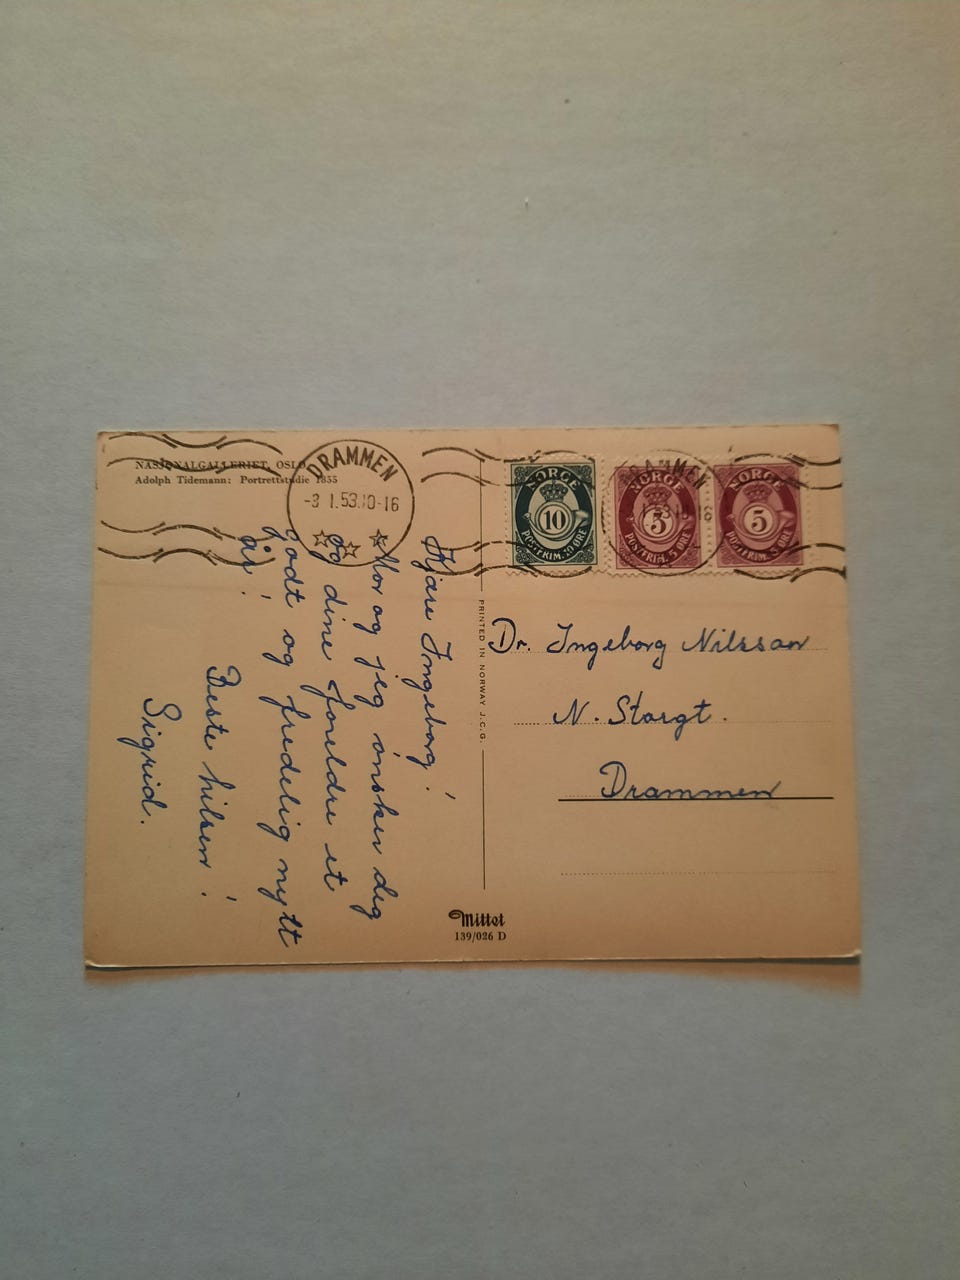 NASJONALGALLERIET, OSLO
Adolph Tidemann: Portrettstudie 1855
DRAMMEN
-3 1.53.10-16
Kjære Ingeborg!
Mor og jeg ønsker deg
og dine foreldre et
godt og fredelig nytt
år!
Beste hilsen!
Sigrid.
PRINTED IN NORWAY J.C.G.
Mittet
139/026 D
NORGE
10
POSTFRIM. 10 ØRE
NORGE
5
POSTFRIM. 5 ØRE
NORGE
5
POSTFRIM. 5 ØRE
DRAMMEN
Dr. Ingeborg Nilsson
N. Storgt.
Drammen